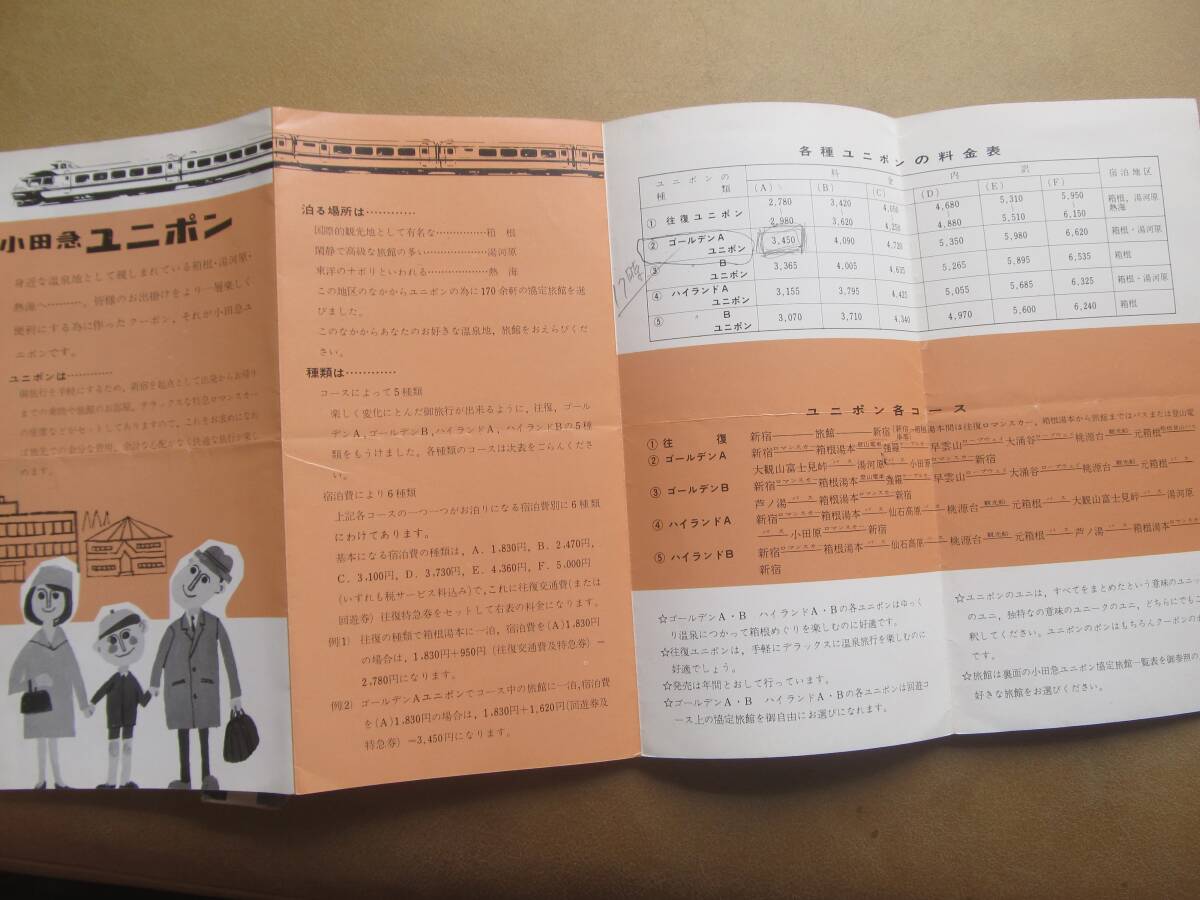 小田急ユニポン
身近な温泉地として親しまれている箱根・湯河原・
熱海へ…………、皆様のお出掛けをより一層楽しく、
便利にする為に作ったクーポン、それが小田急ユ
ニポンです。
ユニポンは…………
御旅行を手軽にするため、新宿を起点として出発からお帰り
までの乗物や旅館のお部屋、デラックスな特急ロマンスカー
の座席などがセットしてありますので、これをお求めになれ
ば旅先での余分な費用、余計な心配がなく快適な旅行が楽し
めます。
泊る場所は…………
国際的観光地として有名な…………箱根
閑静で高級な旅館の多い…………湯河原
東洋のナポリといわれる…………熱海
この地区のなかからユニポンの為に170余軒の協定旅館を選
びました。
このなかからあなたのお好きな温泉地，旅館をおえらびくだ
さい。
種類は…………
コースによって5種類
楽しく変化にとんだ御旅行が出来るように，往復，ゴール
デンA，ゴールデンB，ハイランドA，ハイランドBの5種
類をもうけました。各種類のコースは次表をごらんくださ
い。
宿泊費により6種類
上記各コースの一つ一つがお泊りになる宿泊費別に6種類
にわけてあります。
基本になる宿泊費の種類は，A．1,830円，B．2,470円，
C．3,100円，D．3,730円，E．4,360円，F．5,000円
(いずれも税サービス料込み)で，これに往復交通費(または
回遊券)往復特急券をセットして右表の料金になります。
例1) 往復の種類で箱根湯本に一泊，宿泊費を(A)1,830円
の場合は，1,830円+950円(往復交通費及特急券)=
2,780円になります。
例2) ゴールデンAユニポンでコース中の旅館に一泊，宿泊費
を(A)1,830円の場合は，1,830円+1,620円(回遊券及
特急券)=3,450円になります。
各種ユニポンの料金表
ユニポンの種類 料金内訳 宿泊地区
(A) (B) (C) (D) (E) (F)
① 往復ユニポン 2,780〜2,980 3,420〜3,620 4,050〜4,250 4,680〜4,880 5,310〜5,510 5,950〜6,150 箱根，湯河原 熱海
② ゴールデンAユニポン 3,450 4,090 4,720 5,350 5,980 6,620 箱根・湯河原
③ 〃 Bユニポン 3,365 4,005 4,635 5,265 5,895 6,535 箱根
④ ハイランドAユニポン 3,155 3,795 4,425 5,055 5,685 6,325 箱根・湯河原
⑤ 〃 Bユニポン 3,070 3,710 4,340 4,970 5,600 6,240 箱根
ユニポン各コース
① 往復 新宿―旅館―新宿
② ゴールデンA 新宿ロマンスカー箱根湯本登山電車強羅ケーブルカー早雲山ロープウェイ大涌谷ロープウェイ桃源台観光船元箱根登山バス
大観山富士見峠バス湯河原バス小田原ロマンスカー新宿
③ ゴールデンB 新宿ロマンスカー箱根湯本登山電車強羅ケーブルカー早雲山ロープウェイ大涌谷ロープウェイ桃源台観光船元箱根バス
芦ノ湯バス箱根湯本ロマンスカー新宿
④ ハイランドA 新宿ロマンスカー箱根湯本バス仙石高原バス桃源台観光船元箱根バス大観山富士見峠バス湯河原
バス小田原ロマンスカー新宿
⑤ ハイランドB 新宿ロマンスカー箱根湯本バス仙石高原バス桃源台観光船元箱根バス芦ノ湯バス箱根湯本ロマンスカー
新宿
☆ゴールデンA・B ハイランドA・Bの各ユニポンはゆっく
り温泉につかって箱根めぐりを楽しむのに好適です。
☆往復ユニポンは，手軽にデラックスに温泉旅行を楽しむのに
好適でしょう。
☆発売は年間とおして行っています。
☆ゴールデンA・B ハイランドA・Bの各ユニポンは回遊コ
ース上の協定旅館を御自由にお選びになれます。
☆ユニポンのユニは，すべてをまとめたという意味のユニッ
のユニ，独特なの意味のユニークのユニ，どちらにでもご
釈してください。ユニポンのポンはもちろんクーポンのポ
です。
☆旅館は裏面の小田急ユニポン協定旅館一覧表を御参照の
好きな旅館をお選びください。